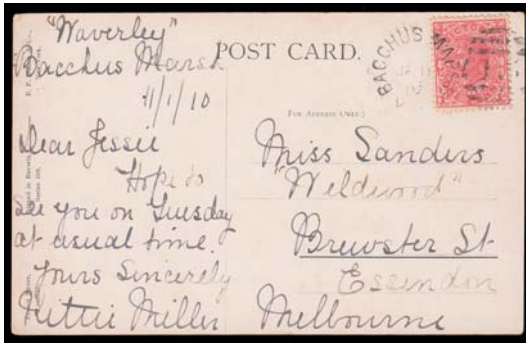 "Waverley"
Bacchus Marsh
11/1/10
Dear Jessie
Hope to
See you on Tuesday
at usual time.
Yours Sincerely
Nettie Miller
POST CARD.
BACCHUS MARSH
VICTORIA
(FOR ADDRESS ONLY.)
Miss Sanders
"Weldwood"
Brewster St
Essendon
Melbourne